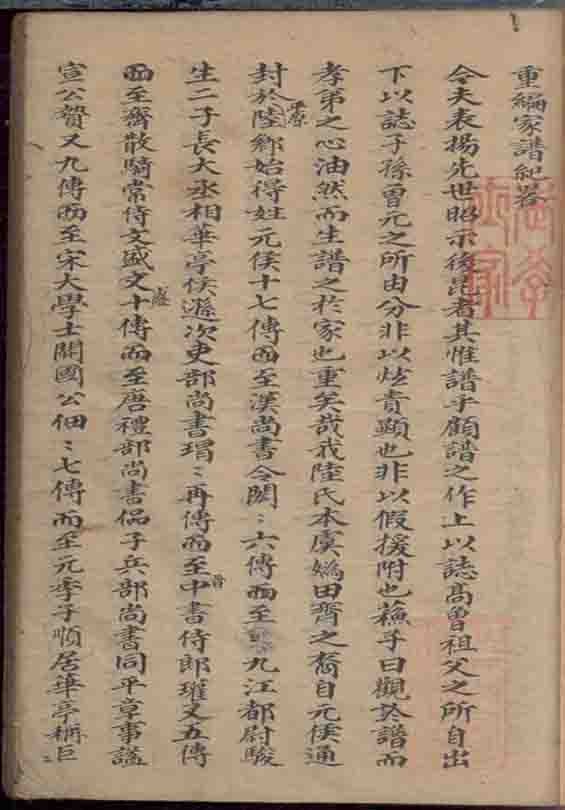 重編家譜紀畧
今夫表揚先世昭示後昆者其惟譜乎顧譜之作上以誌高曾祖父之所自出
下以誌子孫曾元之所由分非以炫貴顯也非以假援附也蘓子曰觀於譜而
孝弟之心油然而生譜之於家也重矣哉我陸氏本虞媯田齊之裔自元侯通
封於平原陸鄉始得姓元侯十七傳而至漢尚書令閎〻六傳而至九江都尉駿
生二子長大丞相華亭侯遜次吏部尚書瑁〻再傳而至晉中書侍郎璀又五傳
而至齊散騎常侍文盛文盛十傳而至唐禮部尚書侃子兵部尚書同平章事諡
宣公贄又九傳而至宋大學士開國公佃〻七傳而至元季子順居華亭稱巨